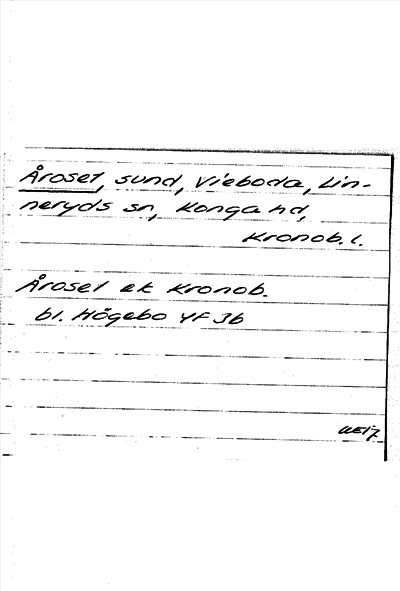 Åroset, sund, Vieboda, Lin-
neryds sn, Konga hd,
Kronob. l.
Åroset ek Kronob.
bl. Högebo 4F 3b